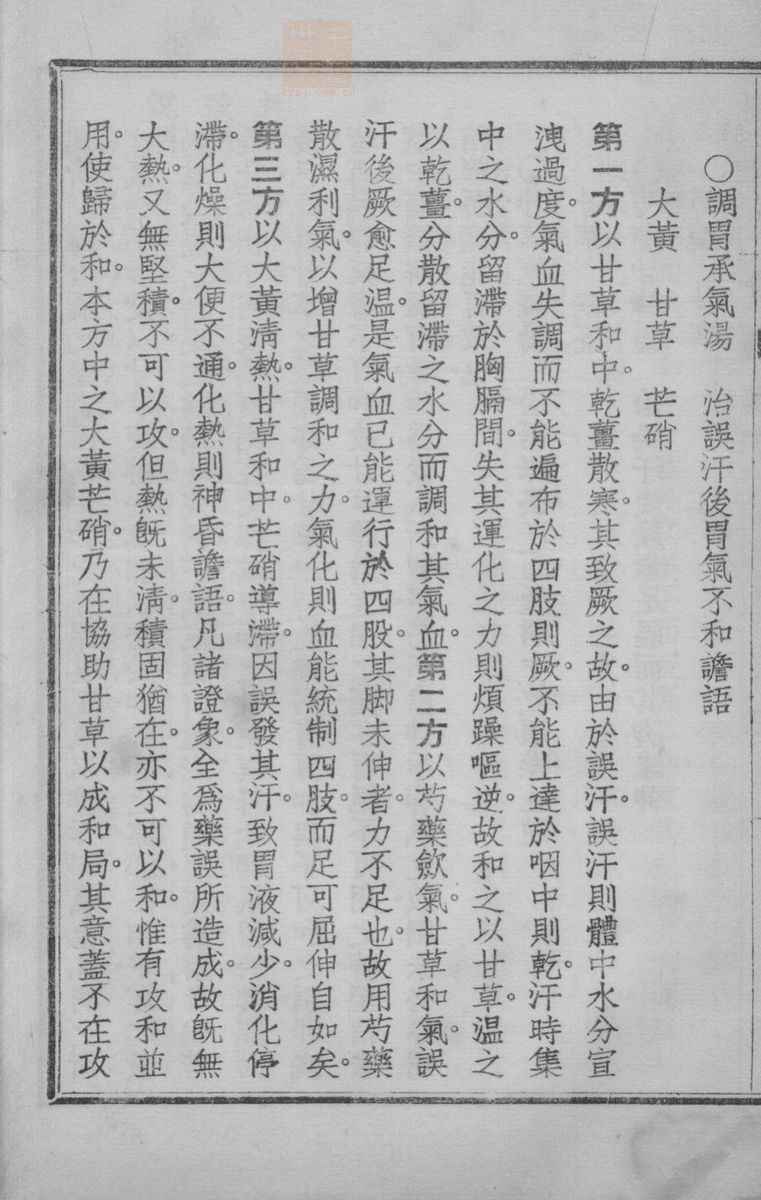 〇調胃承氣湯　治誤汗後胃氣不和譫語
大黃　甘草　芒硝
第一方以甘草和中。乾薑散寒。其致厥之故。由於誤汗。誤汗則體中水分宣
洩過度。氣血失調而不能遍布於四肢則厥。不能上達於咽中則乾。汗時集
中之水分。留滯於胸膈間。失其運化之力則煩躁嘔逆。故和之以甘草。溫之
以乾薑。分散留滯之水分而調和其氣血。第二方以芍藥斂氣。甘草和氣。誤
汗後厥愈足溫。是氣血已能運行於四股。其脚未伸者。力不足也。故用芍藥
散濕利氣。以增甘草調和之力。氣化則血能統制四肢。而足可屈伸自如矣。
第三方以大黃淸熱。甘草和中。芒硝導滯。因誤發其汗。致胃液減少。消化停
滯。化燥則大便不通。化熱則神昏譫語。凡諸證象。全爲藥誤所造成。故旣無
大熱。又無堅積。不可以攻。但熱旣未淸。積固猶在。亦不可以和。惟有攻和並
用。使歸於和。本方中之大黃芒硝。乃在協助甘草以成和局。其意蓋不在攻